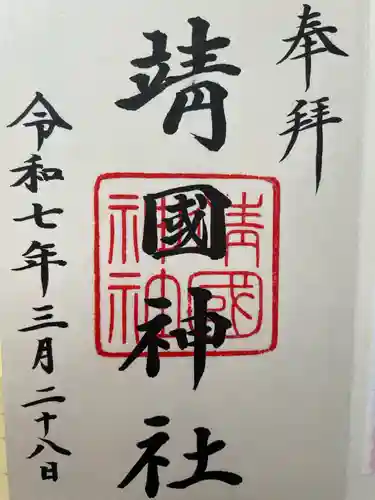 奉拝
靖國神社
靖國
神社
令和七年三月二十八日